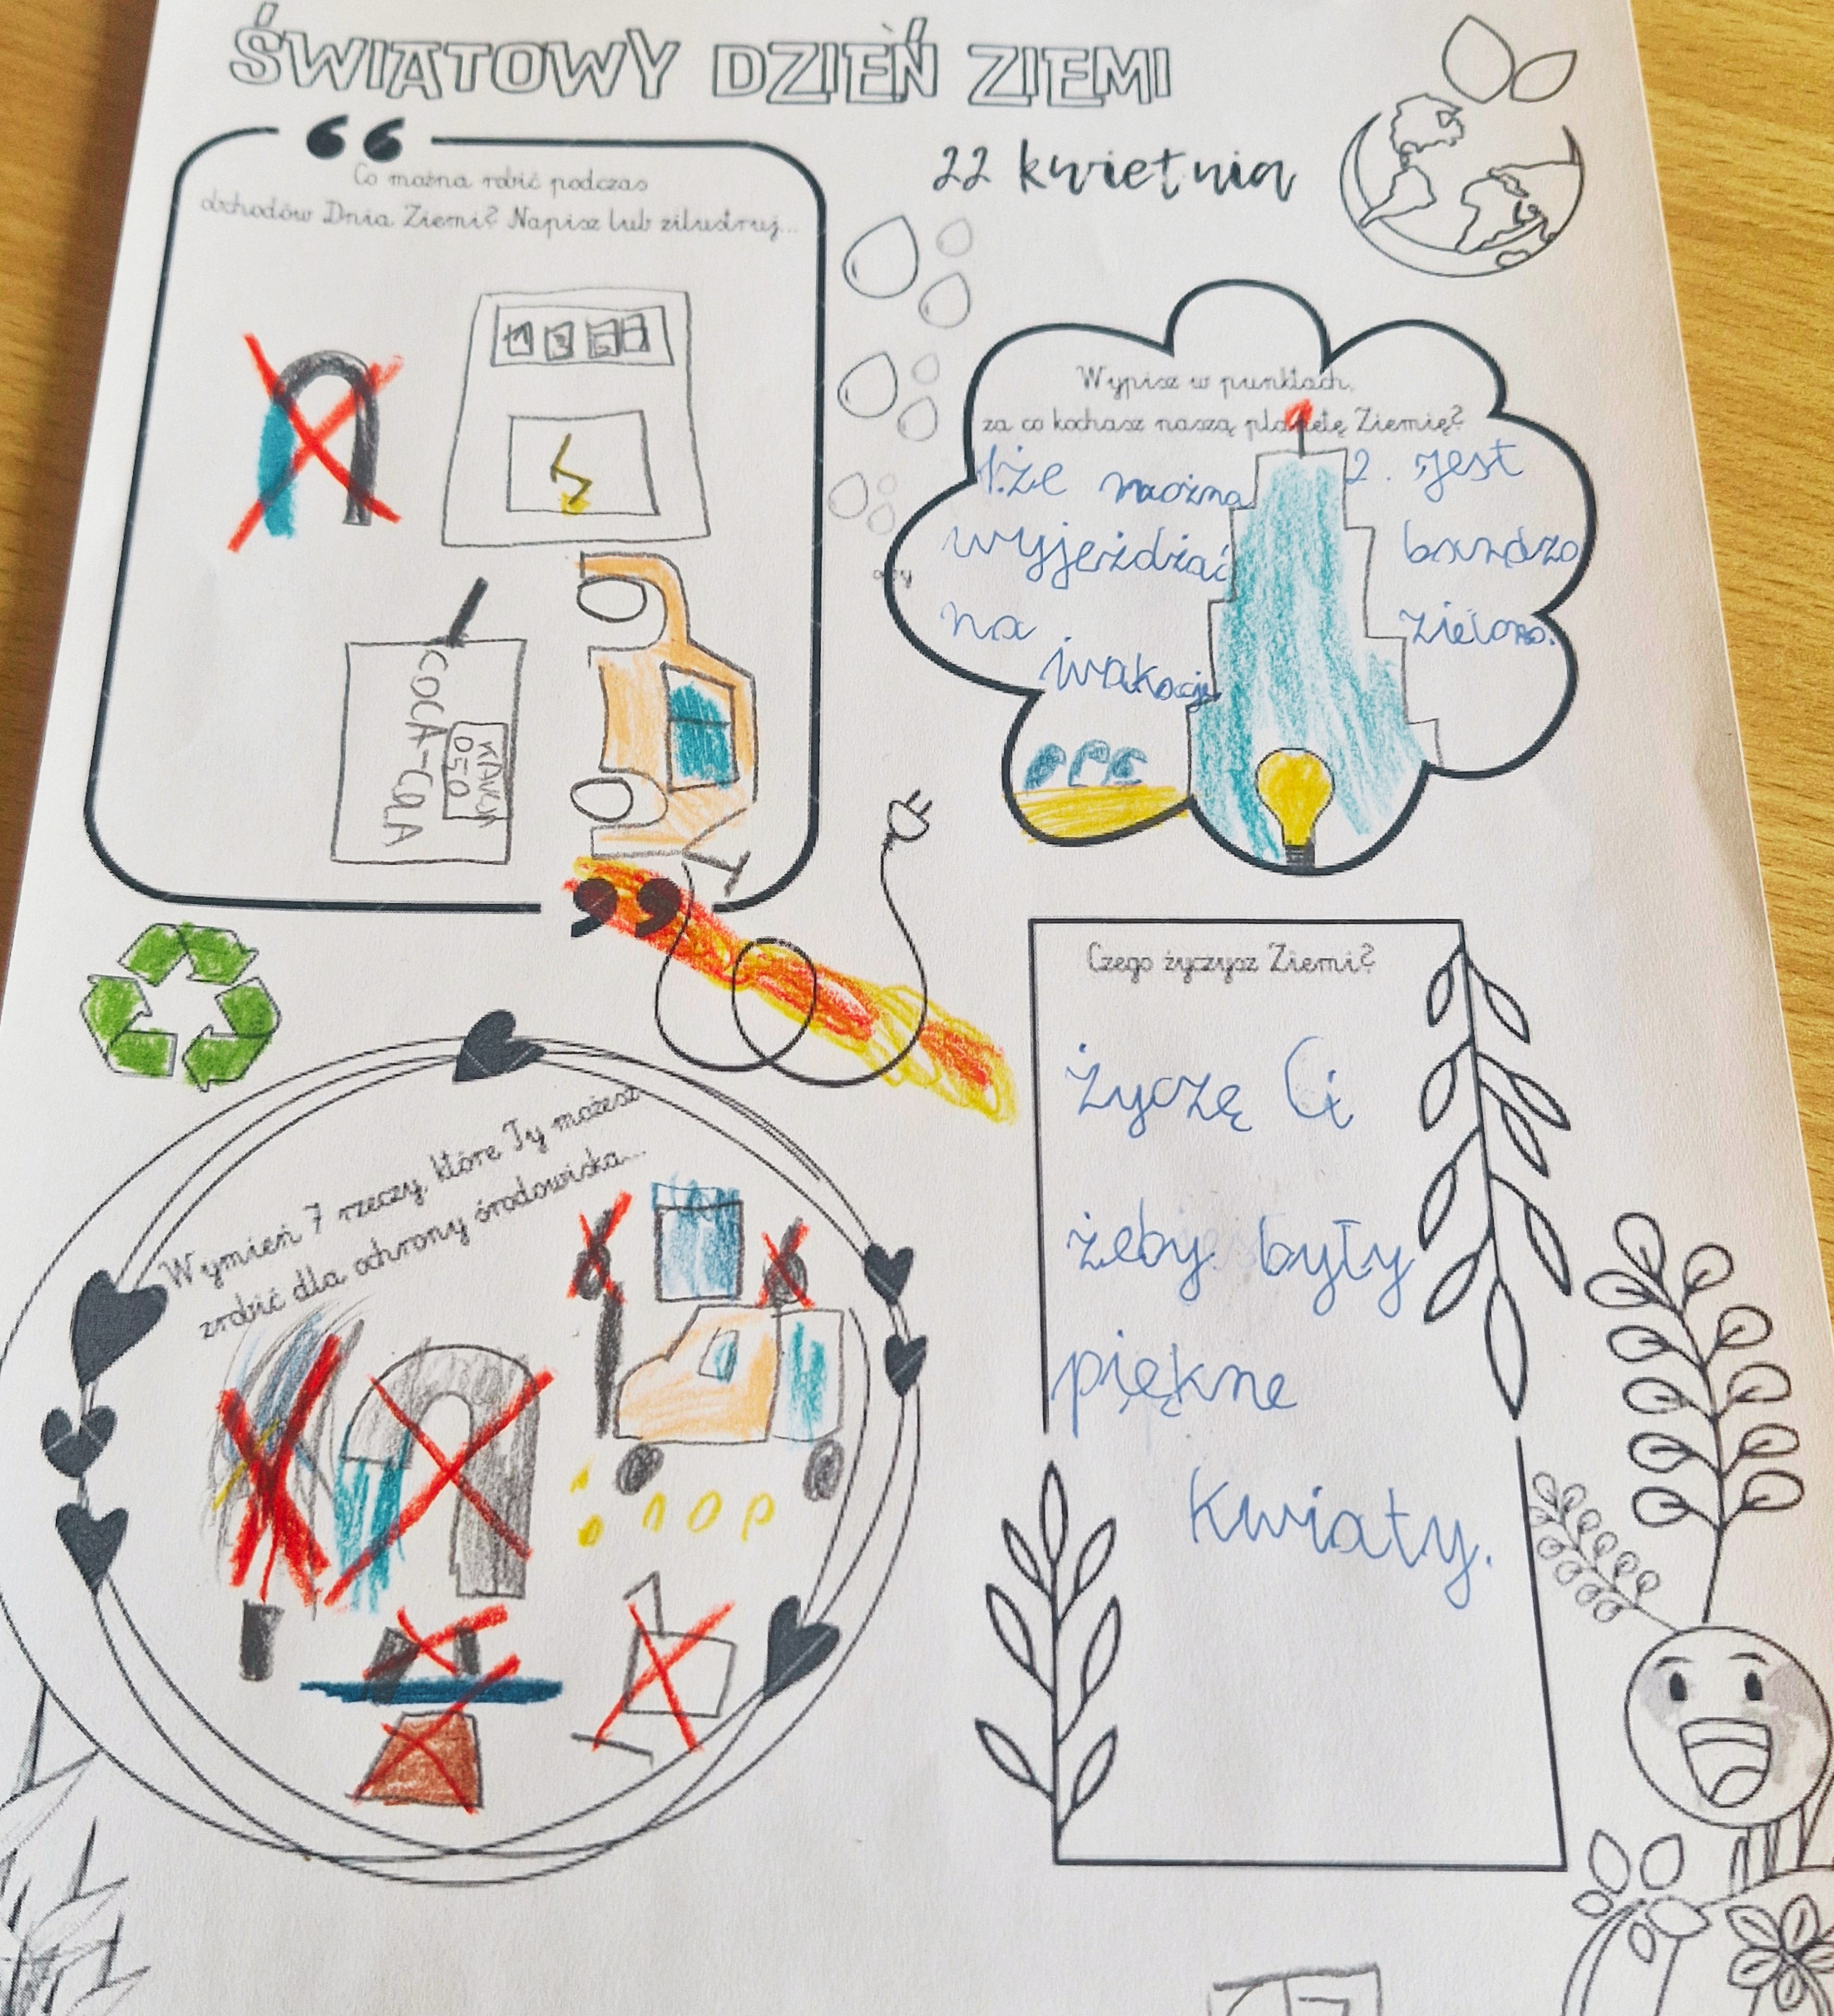 ŚWIATOWY DZIEŃ ZIEMI
22 kwietnia
Co można robić podczas
obchodów Dnia Ziemi? Napisz lub zilustruj...
COCA-COLA
Wypisz w punktach,
za co kochasz naszą planetę Ziemię?
1. że można
wyjeżdżać
na
wakacje
2. jest
bardzo
zielono.
Czego życzysz Ziemi?
życzę Ci
żeby były
piękne
kwiaty.
Wymień 7 rzeczy, które Ty możesz
zrobić dla ochrony środowiska...